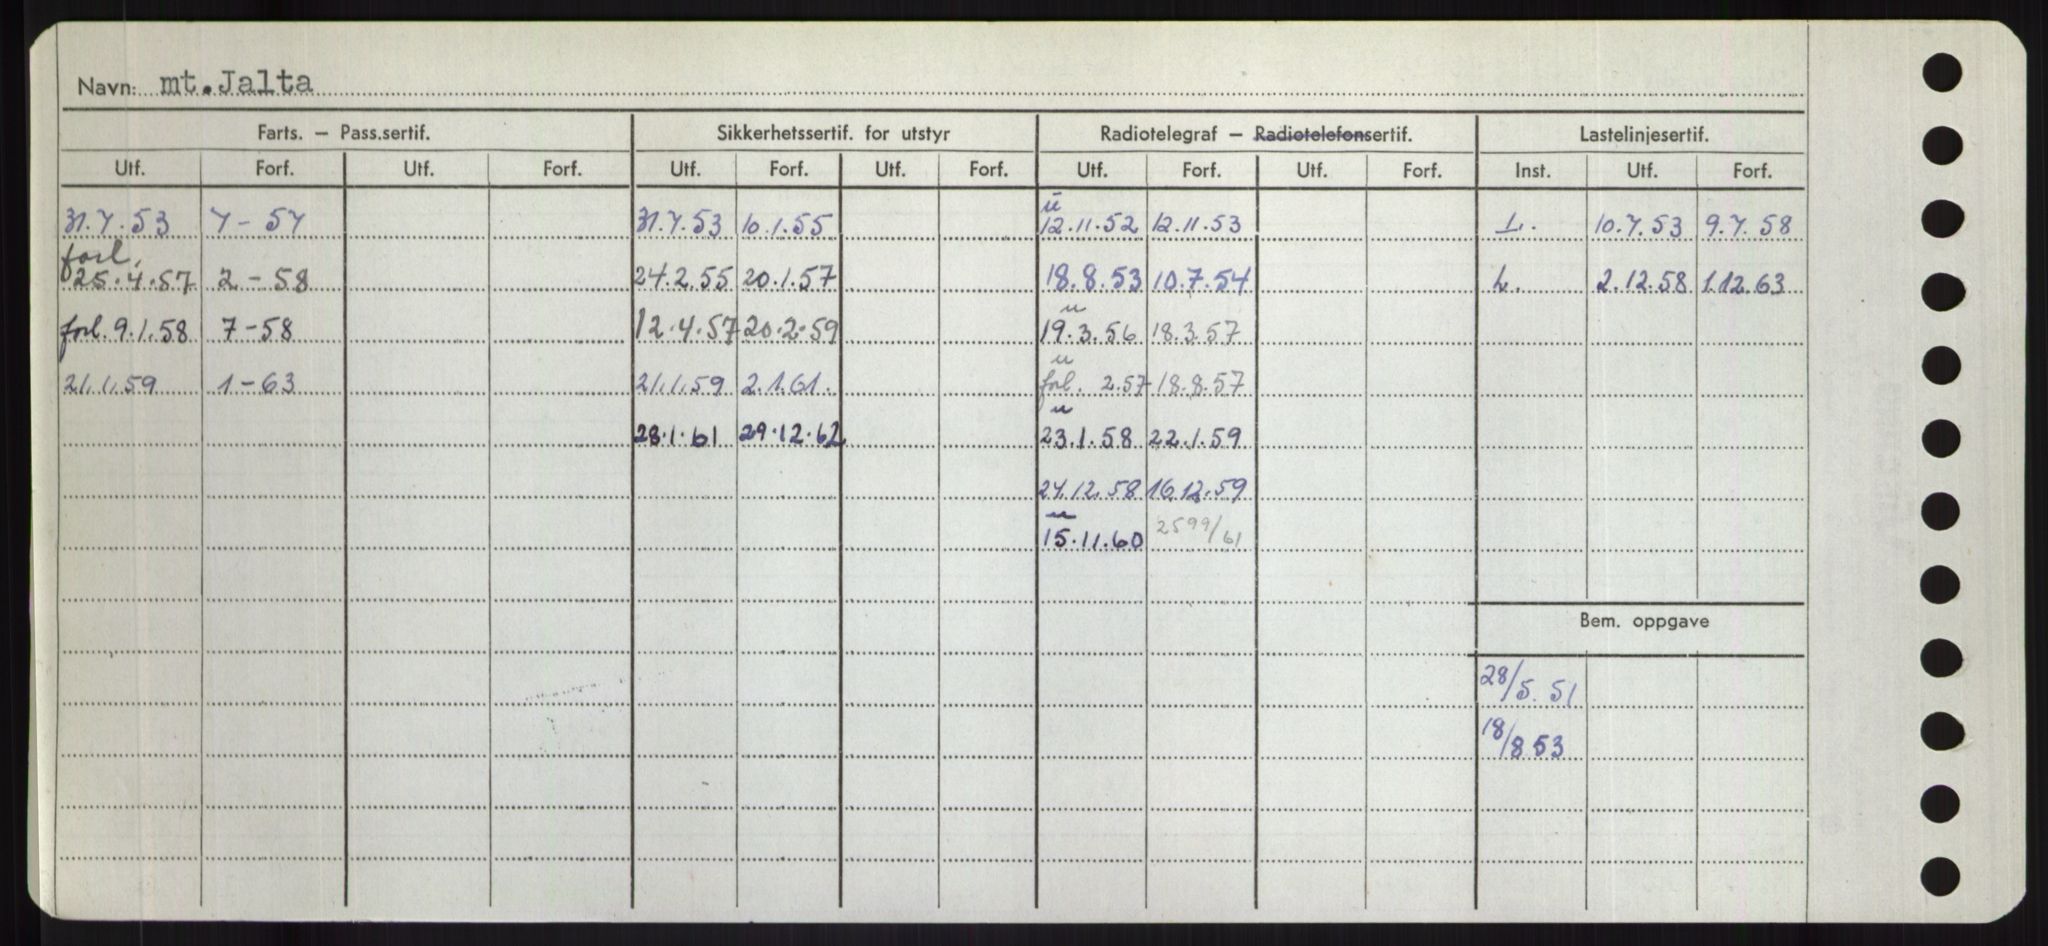 Navn: mt. Jalta
Farts. – Pass.sertif. Sikkerhetssertif. for utstyr Radiotelegraf – Radiotelefonsertif. Lastelinjesertif.
Utf. Forf. Utf. Forf. Utf. Forf. Utf. Forf. Utf. Forf. Utf. Forf. Inst. Utf. Forf.
u
31.7.53 7-57 31.7.53 10.1.55 12.11.52 12.11.53 L. 10.7.53 9.7.58
forl.
25.4.57 2-58 24.2.55 20.1.57 18.8.53 10.7.54 L. 2.12.58 1.12.63
u
forl. 9.1.58 7-58 12.4.57 20.2.59 19.3.56 18.3.57
u
21.1.59 1-63 21.1.59 2.1.61. forl. 2.57 18.8.57
u
28.1.61 29.12.62 23.1.58 22.1.59
24.12.58 16.12.59
u
15.11.60 2599/61
Bem. oppgave
28/5.51
18/8 53